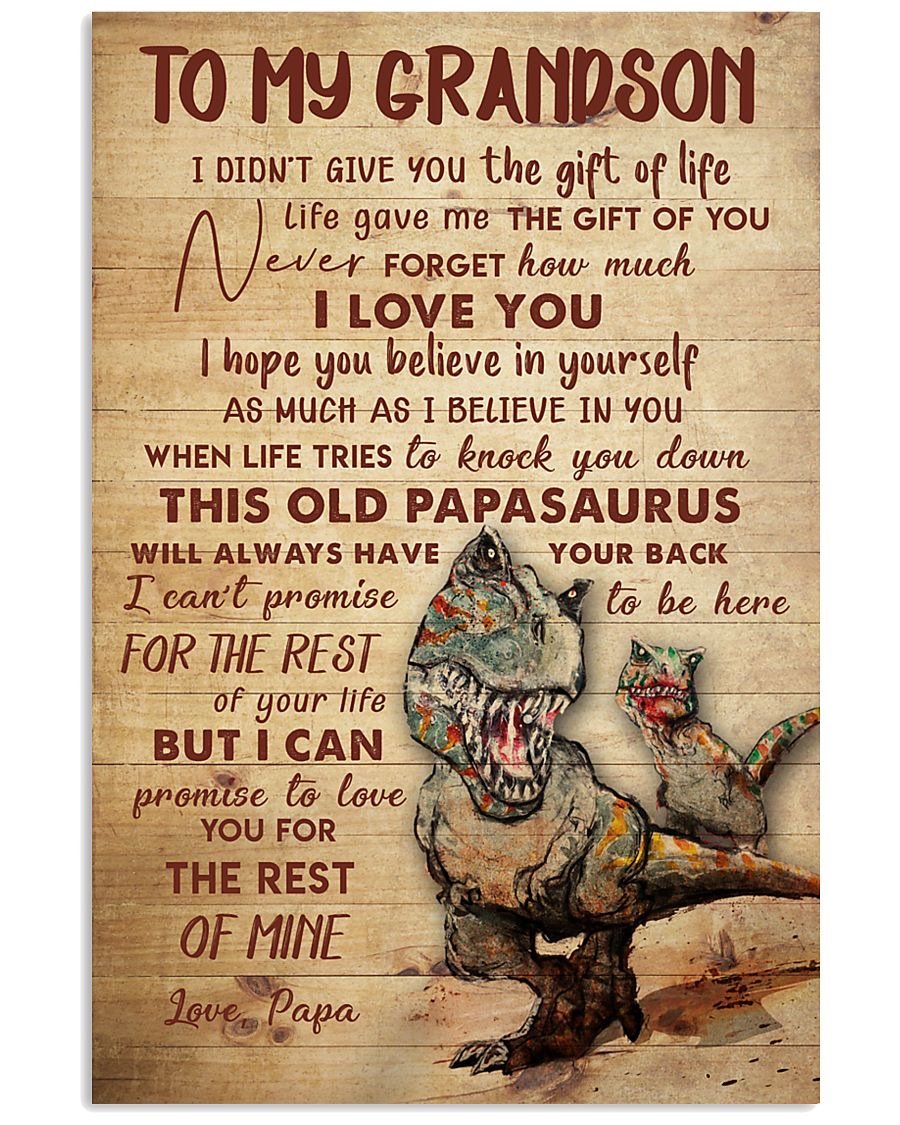 TO MY GRANDSON
I DIDN'T GIVE YOU the gift of life
Life gave me THE GIFT OF YOU
Never FORGET how much
I LOVE YOU
I hope you believe in yourself
AS MUCH AS I BELIEVE IN YOU
WHEN LIFE TRIES to knock you down
THIS OLD PAPASAURUS
WILL ALWAYS HAVE YOUR BACK
I can't promise to be here
FOR THE REST
of your life
BUT I CAN
promise to love
YOU FOR
THE REST
OF MINE
Love, Papa